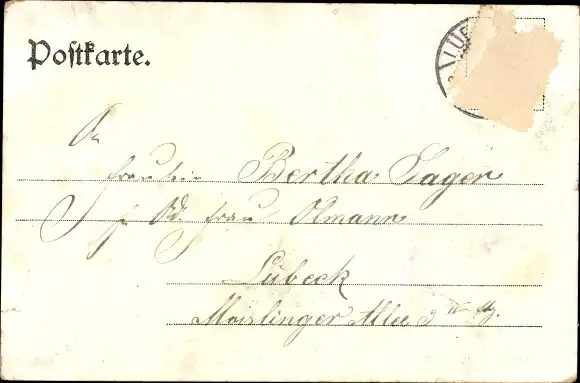 Postkarte.
LÜB
An
Fräulein Bertha Sager
p. Ad. Frau Ohmann
Lübeck
Moislinger Allee 9 II Etg.